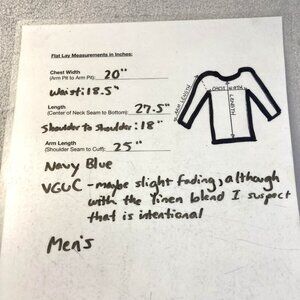 Flat Lay Measurements in Inches:
Chest Width
(Arm Pit to Arm Pit): 20"
Waist: 18.5"
Length
(Center of Neck Seam to Bottom): 27.5"
Shoulder to shoulder: 18"
Arm Length
(Shoulder Seam to Cuff): 25"
ARM LENGTH
CHEST WIDTH
LENGTH
Navy Blue
VGUC - maybe slight fading, although
with the linen blend I suspect
that is intentional
Men's